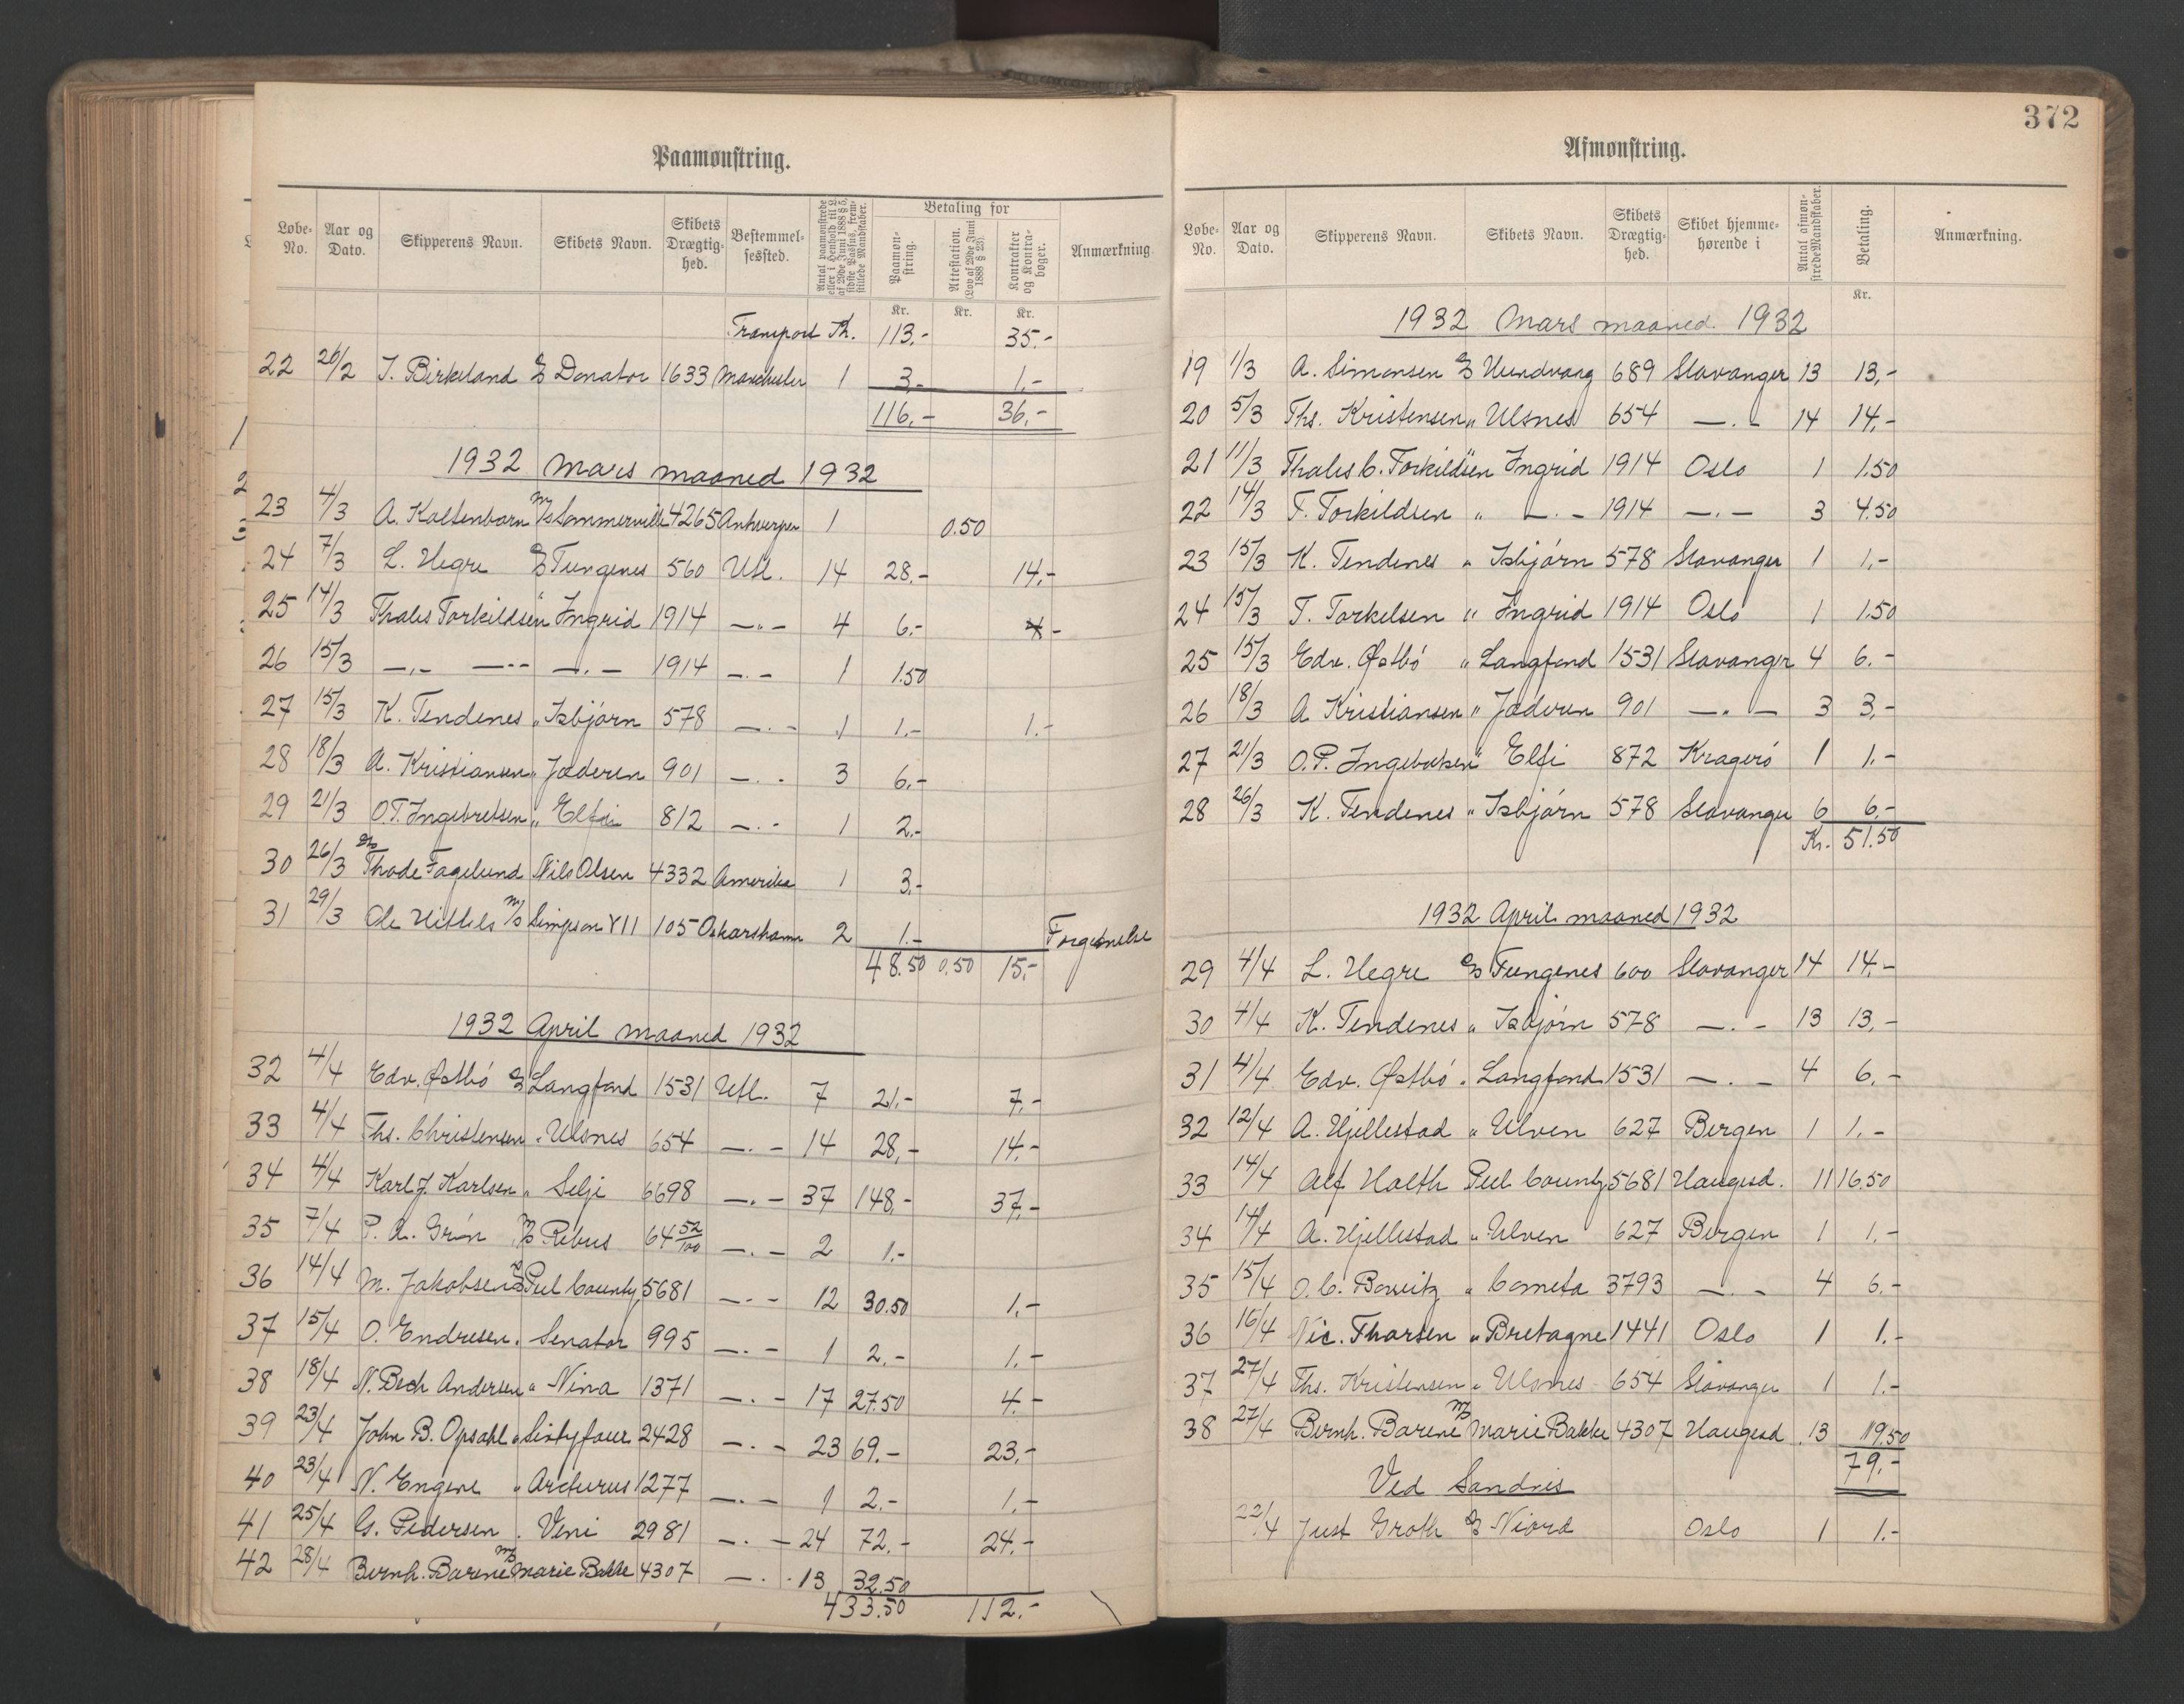 Paamønstring.
Løbe-No. Aar og Dato. Skipperens Navn. Skibets Navn. Skibets Drægtig-hed. Bestemmel-sessted. Antal paamønstrede eller i Henhold til L. af 29de Juni 1888 § 5, sidste Passus, frem-stillede Mandskaber. Betaling for Paamøn-string. Attestation. (Lov af 29de Juni 1888 § 23). Kontrakter og Kontra-bøger. Anmærkning.
Kr. Kr. Kr.
Transport Kr. 113.- 35.-
22 26/2 T. Birkeland S/S Donator 1633 Manchester 1 3.- 1.-
116.- 36.-
1932 Mars maaned 1932
23 4/3 A. Kaltenborn M/S Sommerville 4265 Antwerpen 1 0.50
24 7/3 L. Hegre S/S Tungenes 560 Utl. 14 28.- 14.-
25 14/3 Thales Torkildsen " Ingrid 1914 —"— 4 6.-
26 15/3 —.— —.— —.— 1914 —.— 1 1.50
27 15/3 K. Tendenes " Isbjørn 578 —.— 1 1.- 1.-
28 18/3 A. Kristiansen " Jæderen 901 —.— 3 6.-
29 21/3 O.T. Ingebretsen " Elfi 812 —.— 1 2.-
30 26/3 S/S Thode Fagelund Nils Olsen 4332 Amerika 1 3.-
31 29/3 Ole M/S Simpson VII 105 Oskarshamn 2 1.-
48.50 0.50 15.-
1932 April maaned 1932
32 4/4 Edv. Østbö S/S Langfond 1531 Utl. 7 21.- 7.-
33 4/4 Ths. Christensen " Ulsnes 654 —.— 14 28.- 14.-
34 4/4 Karl J. Karlsen " Selje 6698 —.— 37 148.- 37.-
35 7/4 P. A. Grön M/S Rebus 64 52/100 —.— 2 1.-
36 14/4 M. Jakobsen S/S Peel County 5681 —.— 12 30.50 1.-
37 15/4 O. Endresen " Senator 995 —.— 1 2.- 1.-
38 18/4 N. Bech Andersen " Nina 1371 —.— 17 27.50 4.-
39 23/4 John B. Opsahl " Sixtyfour 2428 —.— 23 69.- 23.-
40 23/4 N. Engene " Arcturus 1277 —.— 1 2.- 1.-
41 25/4 G. Pedersen " Veni 2981 —.— 24 72.- 24.-
42 28/4 Bernh. Barene M/S Marie Bakke 4307 —.— 13 32.50
433.50 112.-
372
Afmønstring.
Løbe-No. Aar og Dato. Skipperens Navn. Skibets Navn. Skibets Drægtig-hed. Skibet hjemme-hørende i Antal afmøn-strede Mandskaber. Betaling. Anmærkning.
Kr.
1932 Mars maaned. 1932
19 1/3 A. Simonsen S/S Hundvaag 689 Stavanger 13 13.-
20 5/3 Ths. Kristensen " Ulsnes 654 —.— 14 14.-
21 11/3 Thales C. Torkildsen Ingrid 1914 Oslo 1 1.50
22 14/3 T. Torkildsen " —.— 1914 —.— 3 4.50
23 15/3 K. Tendenes " Isbjørn 578 Stavanger 1 1.-
24 15/3 T. Torkelsen " Ingrid 1914 Oslo 1 1.50
25 15/3 Edv. Østbö " Langfond 1531 Stavanger 4 6.-
26 18/3 A Kristiansen " Jæderen 901 —.— 3 3.-
27 21/3 O.P. Ingebretsen " Elfi 872 Kragerö 1 1.-
28 26/3 K. Tendenes " Isbjørn 578 Stavanger 6 6.-
Kr. 51.50
1932 April maaned 1932
29 4/4 L. Hegre S/S Tungenes 600 Stavanger 14 14.-
30 4/4 K. Tendenes " Isbjørn 578 —.— 13 13.-
31 4/4 Edv. Østbö " Langfond 1531 —.— 4 6.-
32 12/4 A. Hjellestad " Ulven 627 Bergen 1 1.-
33 14/4 Alf Holth Peel County 5681 Haugesd. 11 16.50
34 14/4 A. Hjellestad " Ulven 627 Bergen 1 1.-
35 15/4 O. C. " Cometa 3793 —.— 4 6.-
36 16/4 Nic. Thorsen " Bretagne 1441 Oslo 1 1.-
37 27/4 Ths. Kristensen " Ulsnes 654 Stavanger 1 1.-
38 27/4 Bernh. Barene M/S Marie Bakke 4307 Haugesd 13 19.50
79.-
Ved Sandnes
22/4 Just Groth S/S Niord Oslo 1 1.-